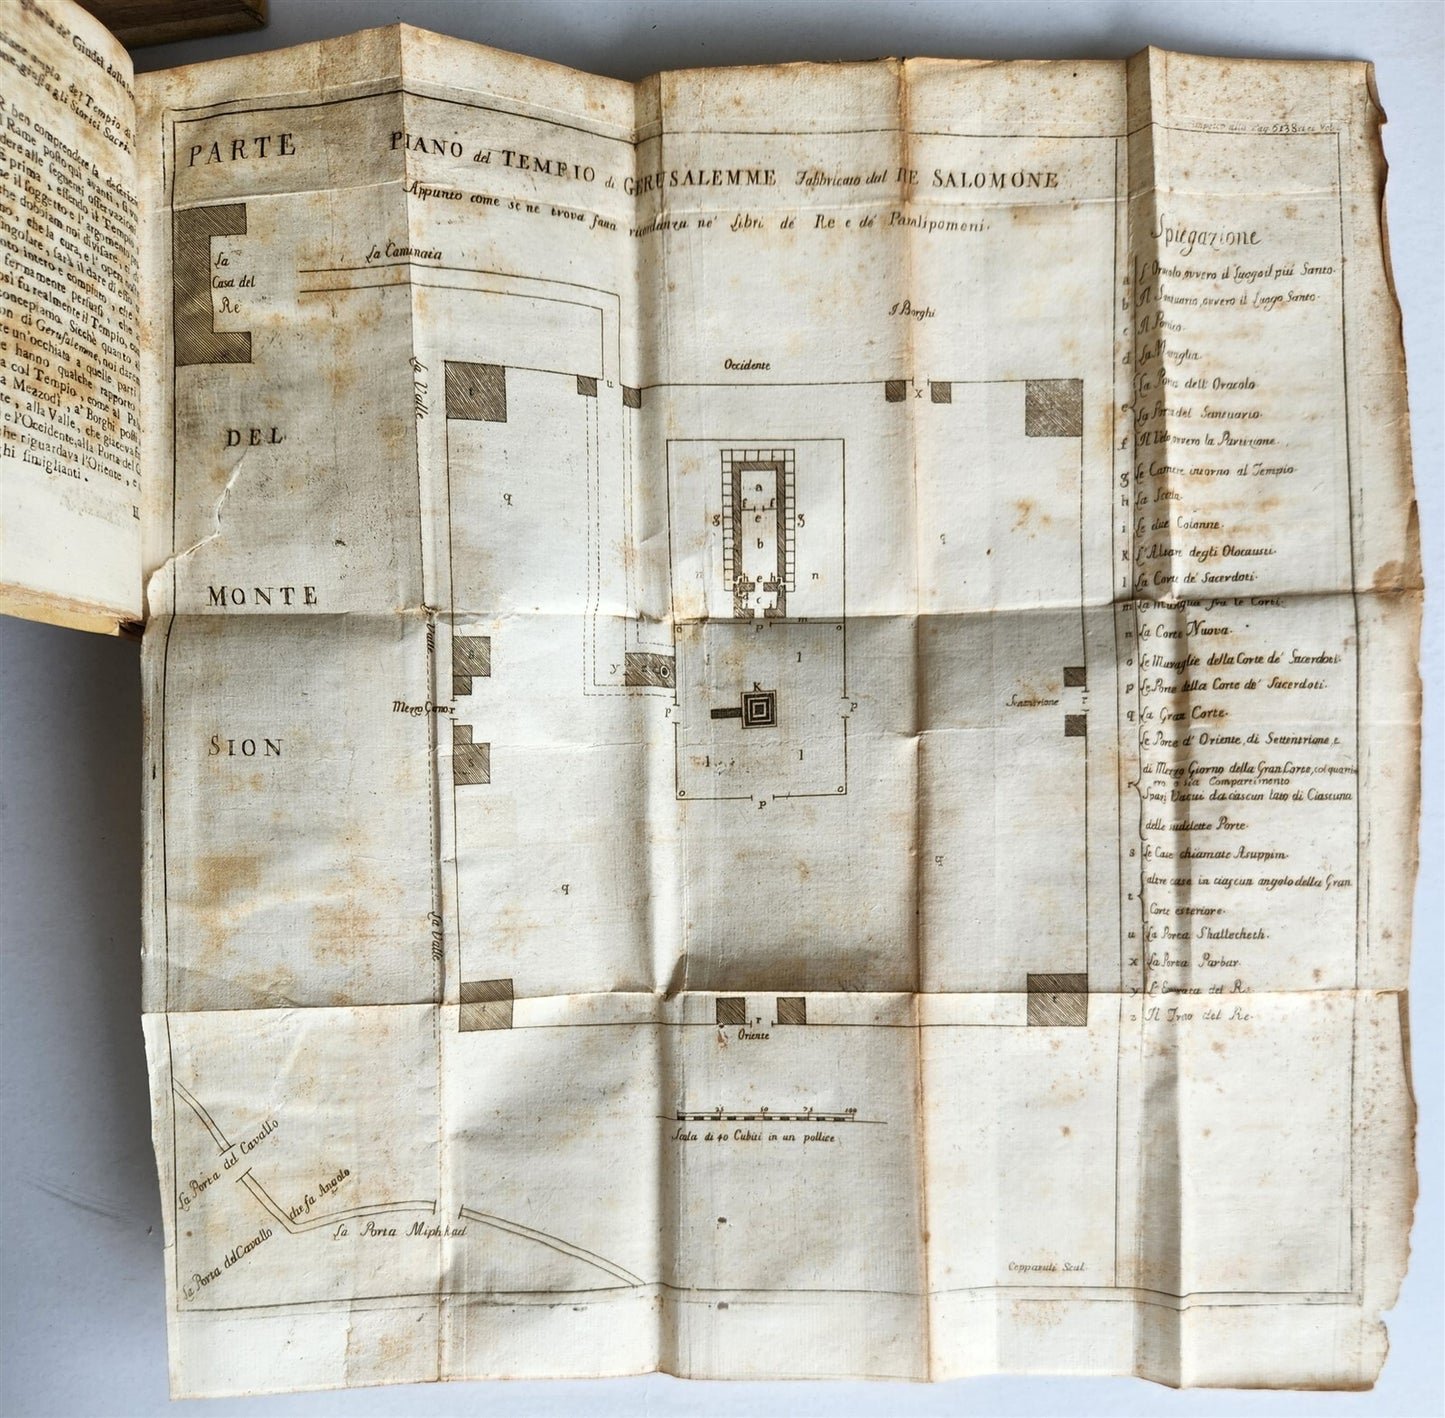 de' Giudei dalla
ampia del Tempio di
giusta gli Storici Sacri.
ben comprendere la
Rame posto qui avanti,
alle seguenti osservazioni
prima, essendo il Tempio,
il soggetto e l'argomento
che dobbiam noi divisare,
che la cura, e l'opera
sarà il dare di esso
intero e compiuto, che
fermamente persuasi, che
fu realmente il Tempio,
concepiamo. Sicchè quanto
di Gerusalemme, noi
un'occhiata a quelle parti
hanno qualche rapporto
col Tempio, come al
a Mezzodì, a' Borghi posti
alla Valle, che giaceva
e l'Occidente, alla Porta del
che riguardava l'Oriente, e
simiglianti.
PARTE
DEL
MONTE
SION
PIANO del TEMPIO di GERUSALEMME Fabbricato dal RE SALOMONE
Appunto come se ne trova fatta ricordanza ne' Libri de' Re e de' Paralipomeni.
La
Casa del
Re
La Caminata
I Borghi
Occidente
La Valle
t
u
x
q
q
a
f f
e
g g
b
n n
h e h
c
p m
o o
y z
l l
K
Mezzo Giorno r
s
s
p p
Settentrione r
l l
o o
p
q
q
La Valle
t
t
r
Oriente
25 50 75 100
Scala di 40 Cubiti in un pollice
La Porta del Cavallo
che fa Angolo
La Porta del Cavallo
La Porta Miphkad
Cepparuli Scul.
Spiegazione
a L'Oracolo, ovvero il Luogo il più Santo.
b Il Santuario, ovvero il Luogo Santo.
c Il Portico.
d La Muraglia.
e La Porta dell' Oracolo
La Porta del Santuario.
f Il Velo, ovvero la Partizione.
g Le Camere intorno al Tempio
h La Scala.
i Le due Colonne.
K L'Altare degli Olocausti.
l La Corte de' Sacerdoti.
m La Muraglia fra le Corti.
n La Corte Nuova.
o Le Muraglie della Corte de' Sacerdoti.
p Le Porte della Corte de' Sacerdoti.
q La Gran Corte.
Le Porte d'Oriente, di Settentrione, e
di Mezzo Giorno della Gran Corte, col quarto
o sia Compartimento
r Spazj Vacui da ciascun lato di Ciascuna
delle suddette Porte.
s Le Case chiamate Asuppim.
altre case in ciascun angolo della Gran
t
Corte esteriore.
u La Porta Shallecheth.
x La Porta Parbar.
y L'Entrata del Re
z Il Trono del Re.